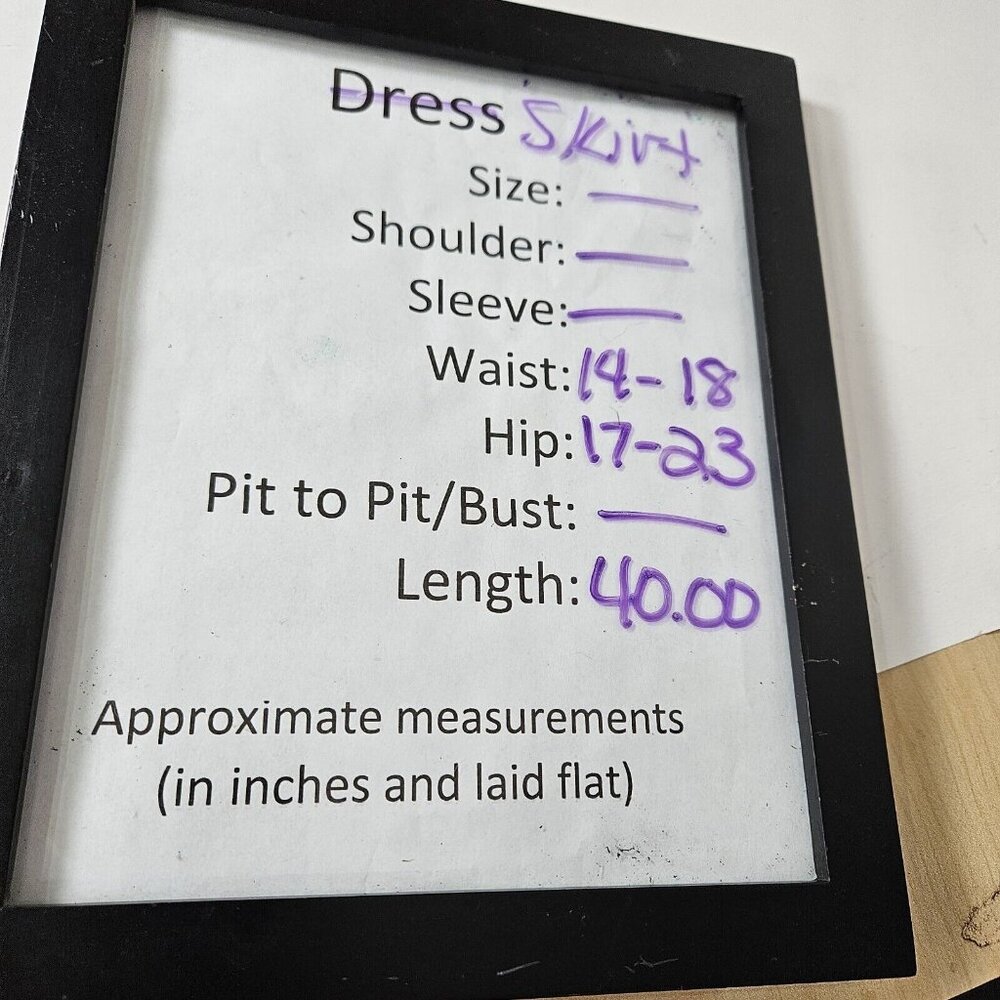 Dress Skirt
Size: —
Shoulder: —
Sleeve: —
Waist: 14-18
Hip: 17-23
Pit to Pit/Bust: —
Length: 40.00
Approximate measurements
(in inches and laid flat)